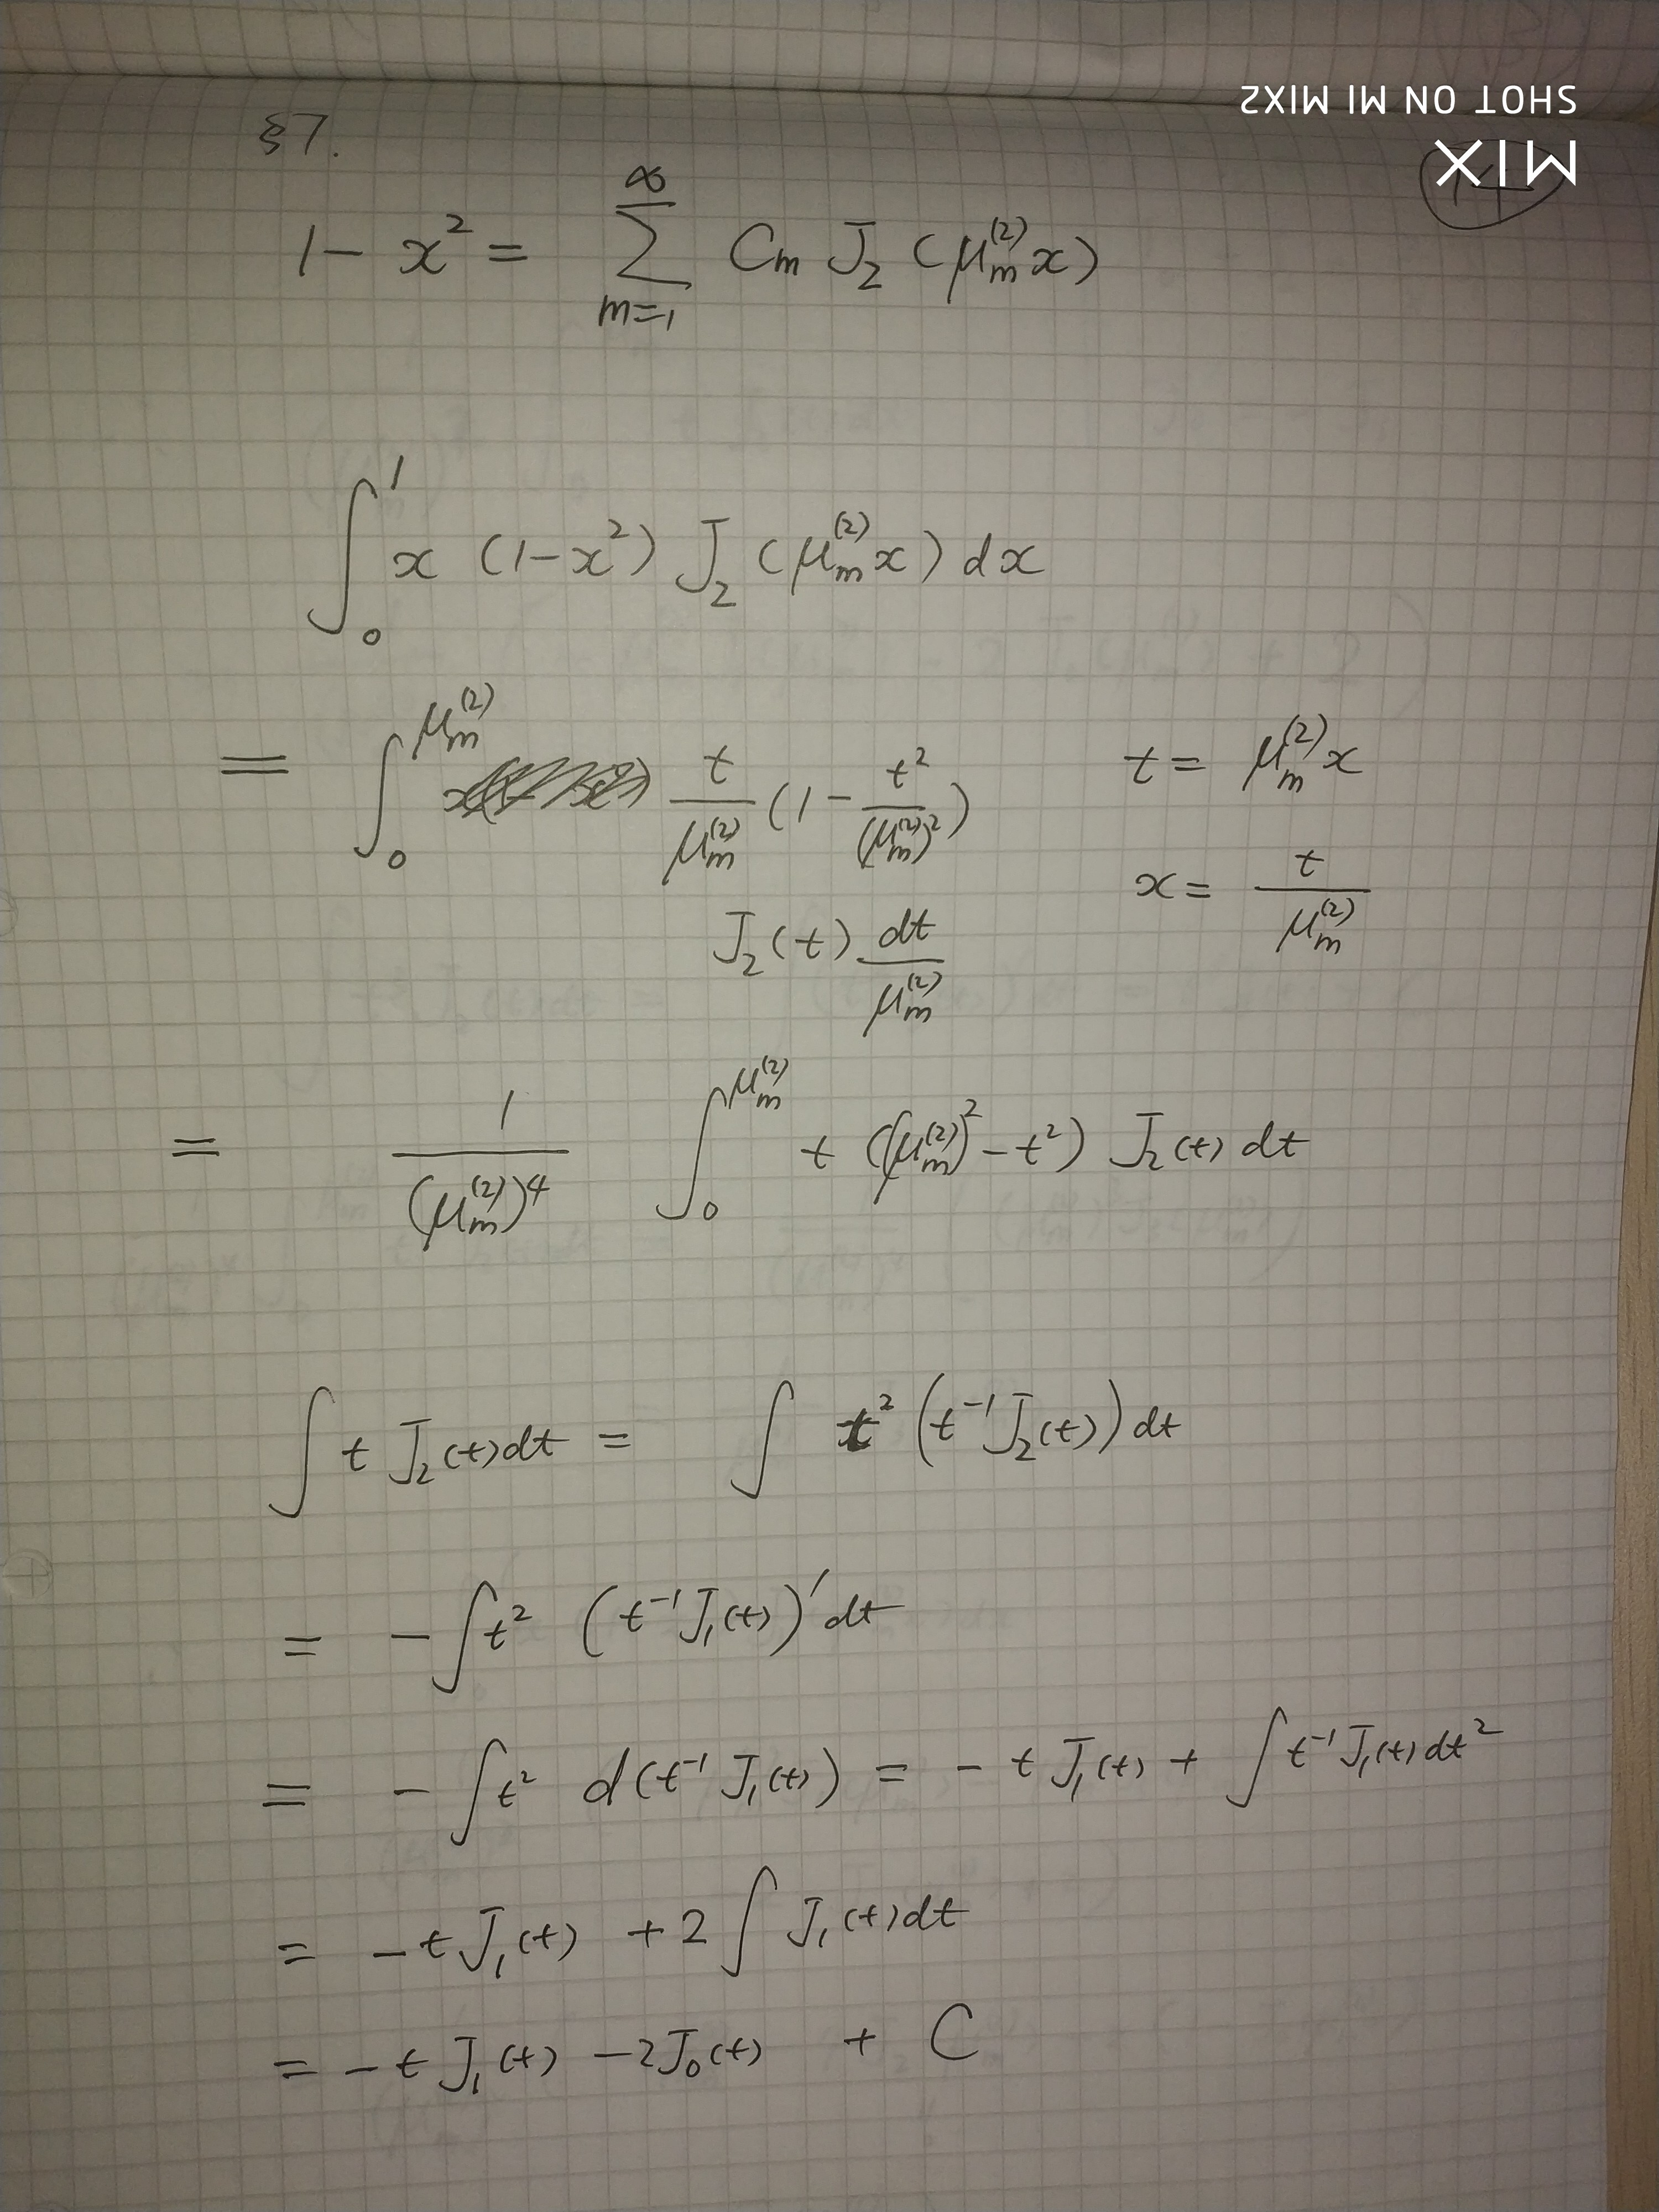 SHOT ON MI MIX2
MIX
§7.
1 - x² = \sum_{m=1}^{∞} C_m J_2 (μ_m^{(2)} x)
\int_0^1 x (1-x²) J_2 (μ_m^{(2)} x) dx
= \int_0^{μ_m^{(2)}} \frac{t}{μ_m^{(2)}} (1 - \frac{t²}{(μ_m^{(2)})²}) t = μ_m^{(2)} x
J_2(t) \frac{dt}{μ_m^{(2)}} x = \frac{t}{μ_m^{(2)}}
= \frac{1}{(μ_m^{(2)})^4} \int_0^{μ_m^{(2)}} t ((μ_m^{(2)})² - t²) J_2(t) dt
\int t J_2(t) dt = \int t² (t^{-1} J_2(t)) dt
= - \int t² (t^{-1} J_1(t))' dt
= - \int t² d(t^{-1} J_1(t)) = - t J_1(t) + \int t^{-1} J_1(t) dt²
= - t J_1(t) + 2 \int J_1(t) dt
= - t J_1(t) - 2 J_0(t) + C